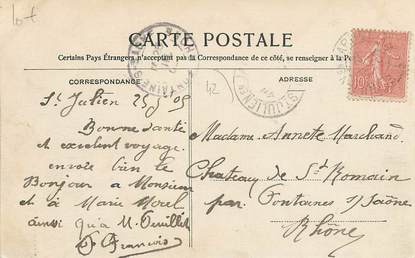 CARTE POSTALE
Certains Pays Étrangers n'acceptant pas la Correspondance de ce côté, se renseigner à la Po
CORRESPONDANCE
ADRESSE
St Julien
Bonne santé
et excelent voyage.
envoie bien le
Bonjour a Monsieur
et à Marie Morel
ainsi qu'a M.
François
42
Madame Annette Marchand
Chateau de St Romain
par Fontaines s/ Saône
Rhône
ST JULIEN
10